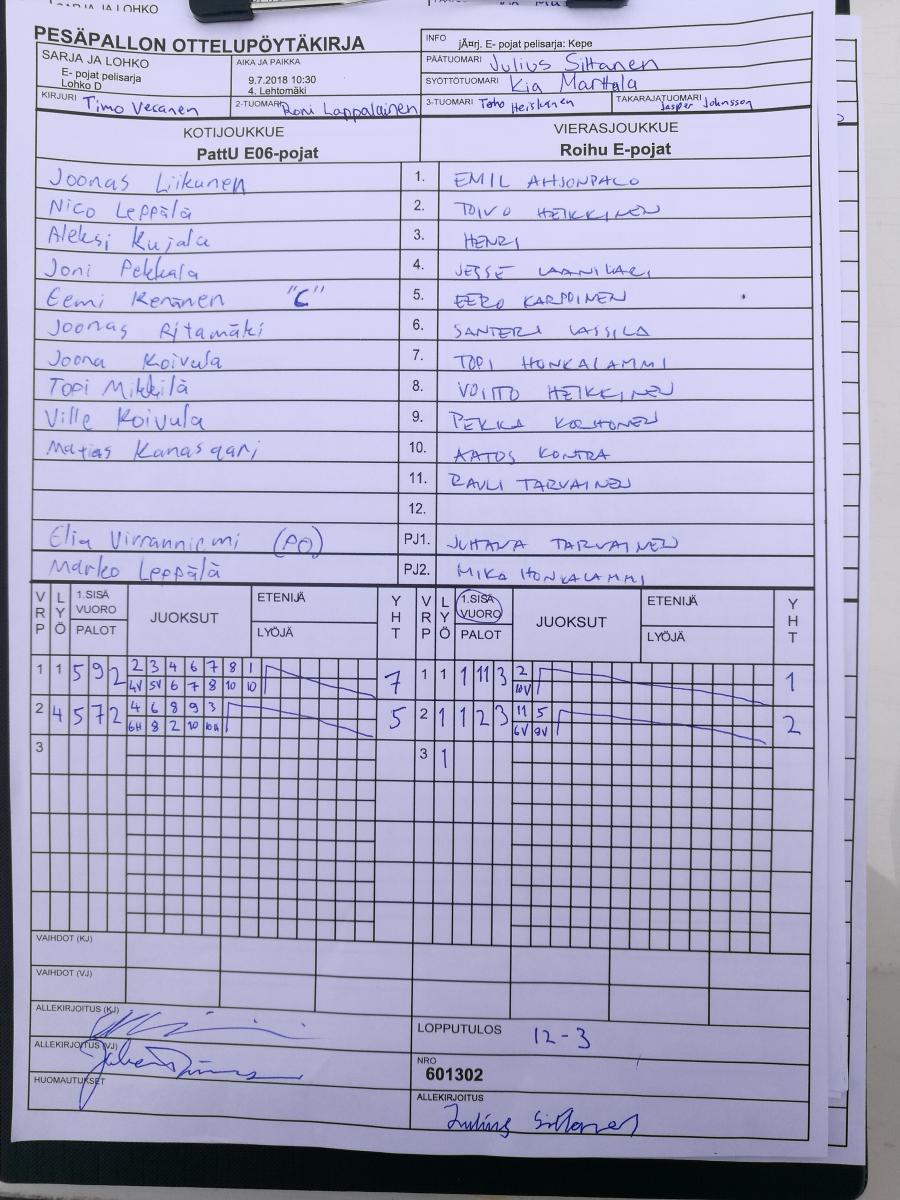 PESÄPALLON OTTELUPÖYTÄKIRJA
INFO jÃ¤rj. E- pojat pelisarja: Kepe
SARJA JA LOHKO
E- pojat pelisarja
Lohko D
AIKA JA PAIKKA
9.7.2018 10:30
4. Lehtomäki
PÄÄTUOMARI Julius Siltanen
SYÖTTÖTUOMARI Kia Marttala
KIRJURI Timo 2-TUOMARI Roni Lappalainen 3-TUOMARI Toho Heiskanen TAKARAJATUOMARI Jasper Johnsson
KOTIJOUKKUE VIERASJOUKKUE
PattU E06-pojat Roihu E-pojat
Joonas Liikanen 1. EMIL AHJONPALO
Nico Leppälä 2. TOIVO HEIKKINEN
Aleksi Kujala 3. HENRI
Joni Pekkala 4. JESSE
Eemi Keränen "C" 5. EERO KARPPINEN
Joonas Ritamäki 6. SANTERI LASSILA
Joona Koivula 7. TOPI HONKALAMMI
Topi Mikkilä 8. VOITTO HEIKKINEN
Ville Koivula 9. PEKKA KORHONEN
Matias 10. AATOS KONTRA
11. RAULI TARVAINEN
12.
Elia Virranniemi (PO) PJ1. JUHANA TARVAINEN
Marko Leppälä PJ2. MIKA HONKALAMMI
VRP LYÖ 1.SISÄ VUORO PALOT JUOKSUT ETENIJÄ LYÖJÄ YHT VRP LYÖ 1.SISÄ VUORO PALOT JUOKSUT ETENIJÄ LYÖJÄ YHT
1 1 5 9 2 2 3 4 6 7 8 1 7 1 1 1 11 3 2 1
4V 5V 6 7 8 10 10 10V
2 4 5 7 2 4 6 8 9 3 5 2 1 1 2 3 11 5 2
6H 8 2 10 10H 6V 9V
3 3 1
VAIHDOT (KJ)
VAIHDOT (VJ)
ALLEKIRJOITUS (KJ)
LOPPUTULOS 12-3
ALLEKIRJOITUS (VJ)
NRO
601302
HUOMAUTUKSET
ALLEKIRJOITUS
Julius Siltanen